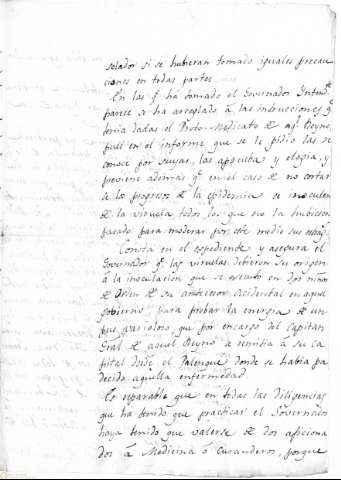 selador si se hubieran tomado iguales precau
ciones en todas partes.
En las q.e ha tomado el Governador Intend.te
parece se ha arreglado â las instrucciones q.e
tenia dadas el Proto-Medicato de aq.l Reyno,
pues en el informe que se le pidio las re
conoce por suyas, las aprueba y elogia, y
previene ademas q.e en el caso de no cortar
se los progresos de la epidemia se inoculen
de la viruela todos los que no la hubiesen
pasado para moderar por este medio sus estrag.s
Consta en el expediente y asegura el
Governador q.e las viruelas debieron su origen
â la inoculacion que se executò en dos niños
de orden de su antecesor accidental en aquel
gobierno, para probar la energia de un
pus varioloso que por encargo del Capitan
Gral de aquel Reyno se remitia â su ca
pital desde el Palenque donde se habia pa
decido aquella enfermedad.
Es reparable que en todas las diligencias
que ha tenido que practicar el Governador
haya tenido que valerse de dos aficiona
dos â Medicina ò Curanderos, porque